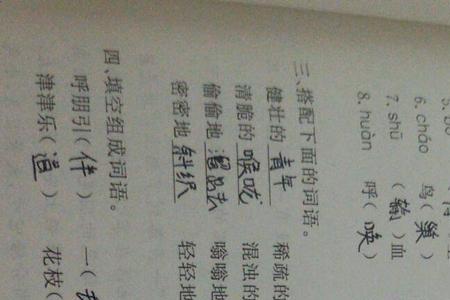 6. cháo 鸟（巢）
7. shū （输）血
8. huàn 呼（唤）
三、搭配下面的词语。
健壮的 青年 稀疏的
清脆的 喉咙 混浊的
偷偷地 溜出去 嗡嗡地
密密地 斜织 轻轻地
四、填空组成词语。
呼朋引（伴） 一（
津津乐（道） 花枝（